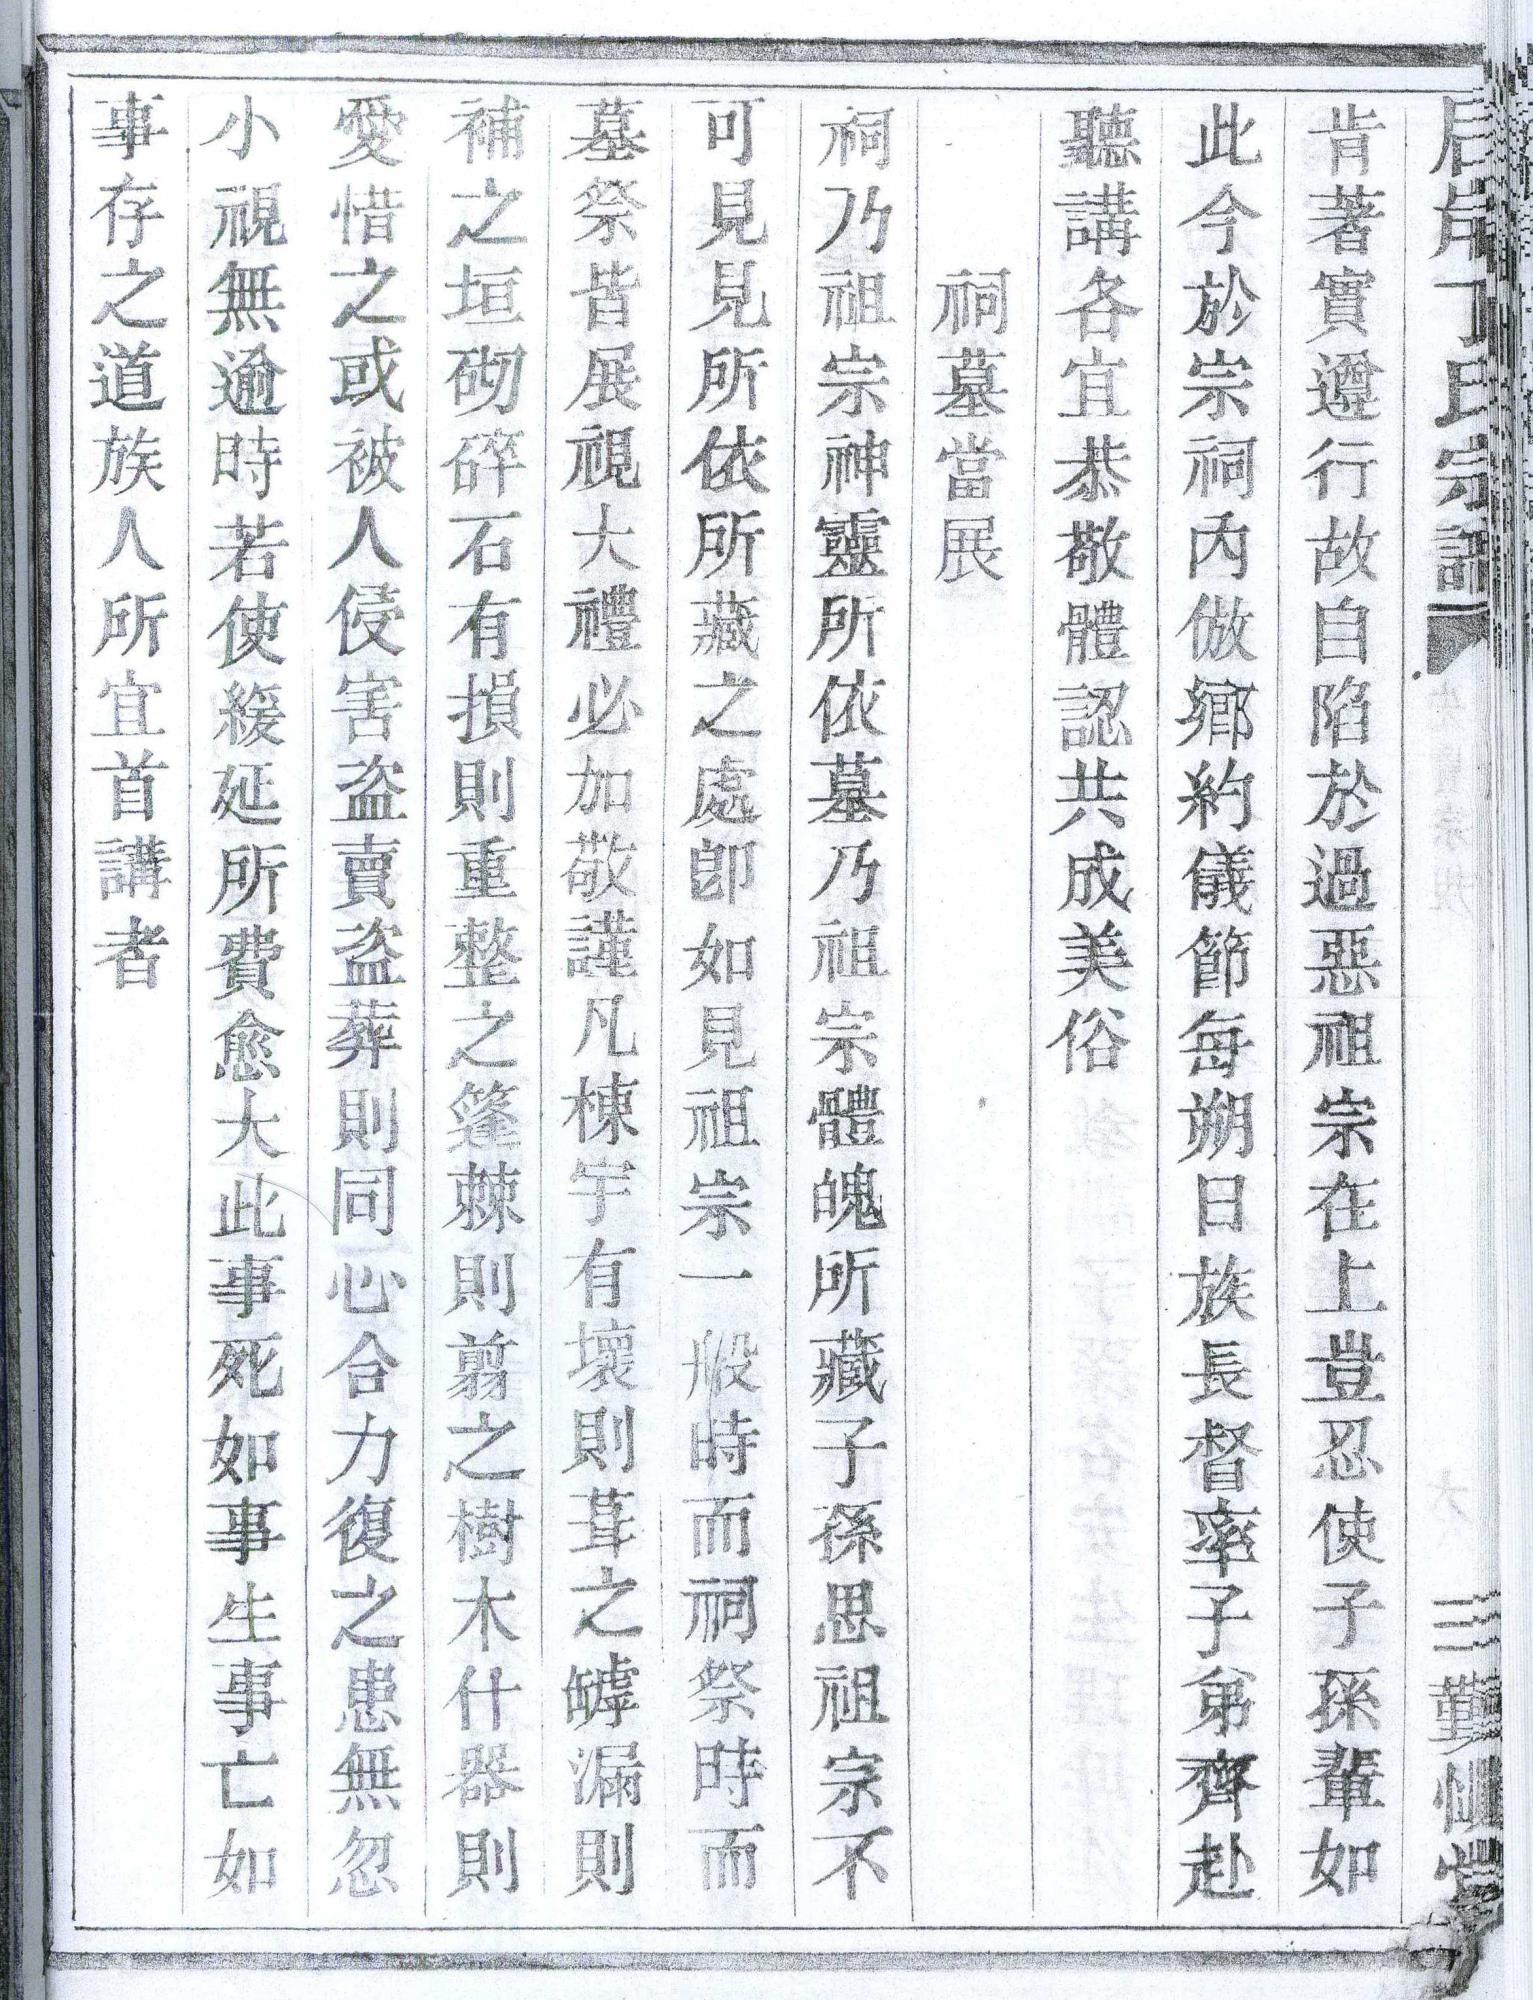 丁氏宗譜
三
肯著實遵行故自陷於過惡祖宗在上豈忍使子孫輩如
此今於宗祠內倣鄉約儀節每朔日族長督率子弟齊赴
聽講各宜恭敬體認共成美俗
祠墓當展
祠乃祖宗神靈所依墓乃祖宗體魄所藏子孫思祖宗不
可見見所依所藏之處卽如見祖宗一般時而祠祭時而
墓祭皆展視大禮必加敬謹凡棟宇有壞則葺之罅漏則
補之垣砌碎石有損則重整之篷棘則翦之樹木什器則
愛惜之或被人侵害盜賣盜葬則同心合力復之患無忽
小視無逾時若使緩延所費愈大此事死如事生事亡如
事存之道族人所宜首講者